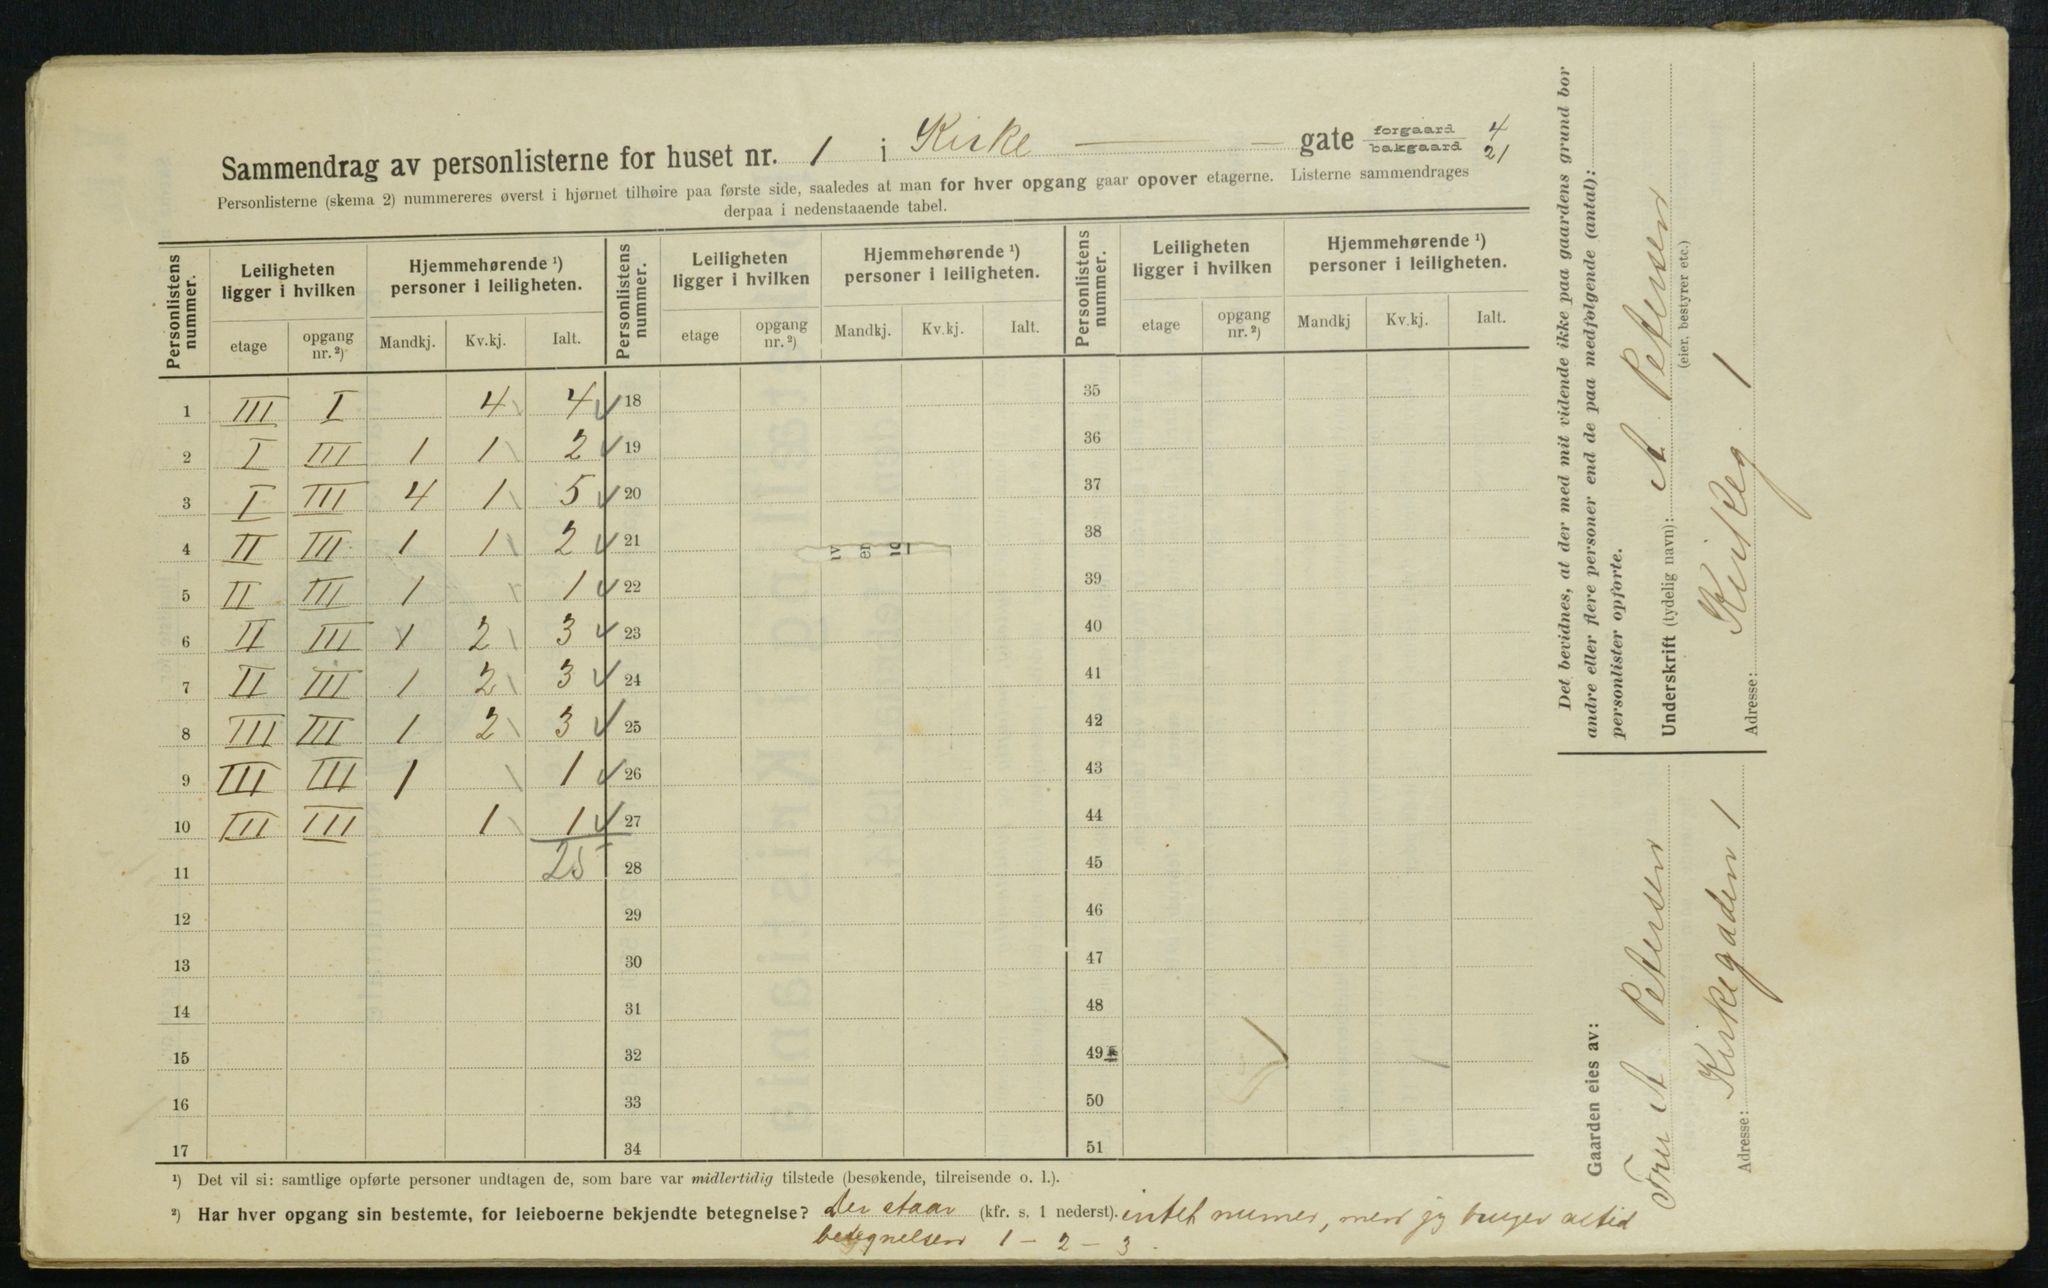 Sammendrag av personlisterne for huset nr. 1 i Kirke — gate forgaard 4
bakgaard 21
Personlisterne (skema 2) nummereres øverst i hjørnet tilhøire paa første side, saaledes at man for hver opgang gaar opover etagerne. Listerne sammendrages
derpaa i nedenstaaende tabel.
Personlistens nummer. Leiligheten ligger i hvilken Hjemmehørende ¹) personer i leiligheten. Personlistens nummer. Leiligheten ligger i hvilken Hjemmehørende ¹) personer i leiligheten. Personlistens nummer. Leiligheten ligger i hvilken Hjemmehørende ¹) personer i leiligheten.
etage opgang nr. ²) Mandkj. Kv.kj. Ialt. etage opgang nr. ²) Mandkj. Kv.kj. Ialt. etage opgang nr. ²) Mandkj Kv.kj. Ialt.
1 III I 4 4 18 35
2 I III 1 1 2 19 36
3 I III 4 1 5 20 37
4 II III 1 1 2 21 38
5 II III 1 1 22 39
6 II III 1 2 3 23 40
7 II III 1 2 3 24 41
8 III III 1 2 3 25 42
9 III III 1 1 26 43
10 III III 1 1 27 44
11 25 28 45
12 29 46
13 30 47
14 31 48
15 32 49
16 33 50
17 34 51
¹) Det vil si: samtlige opførte personer undtagen de, som bare var midlertidig tilstede (besøkende, tilreisende o. l.).
²) Har hver opgang sin bestemte, for leieboerne bekjendte betegnelse? Der staar (kfr. s. 1 nederst). intet numer, men jeg bruger altid
betegnelsen 1 - 2 - 3.
Det bevidnes, at der med mit vidende ikke paa gaardens grund bor
andre eller flere personer end de paa medfølgende (antal):
personlister opførte.
Underskrift (tydelig navn): A Petersen
(eier, bestyrer etc.)
Adresse: Kirkeg 1
Gaarden eies av:
Fru A Petersen
Adresse: Kirkegaden 1